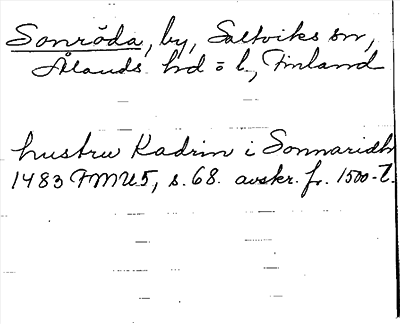 Sonröda, by, Saltviks sn,
Ålands hd o l., Finland
hustru Kadrin i Sonnaridh
1483 FMU5, s. 68. avskr. fr. 1500-t.